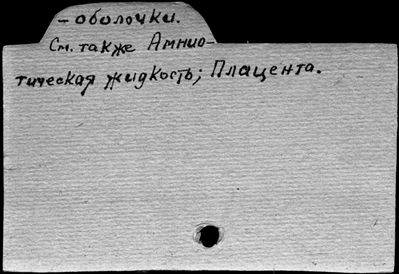 - оболочки.
См. также Амнио-
тическая жидкость; Плацента.